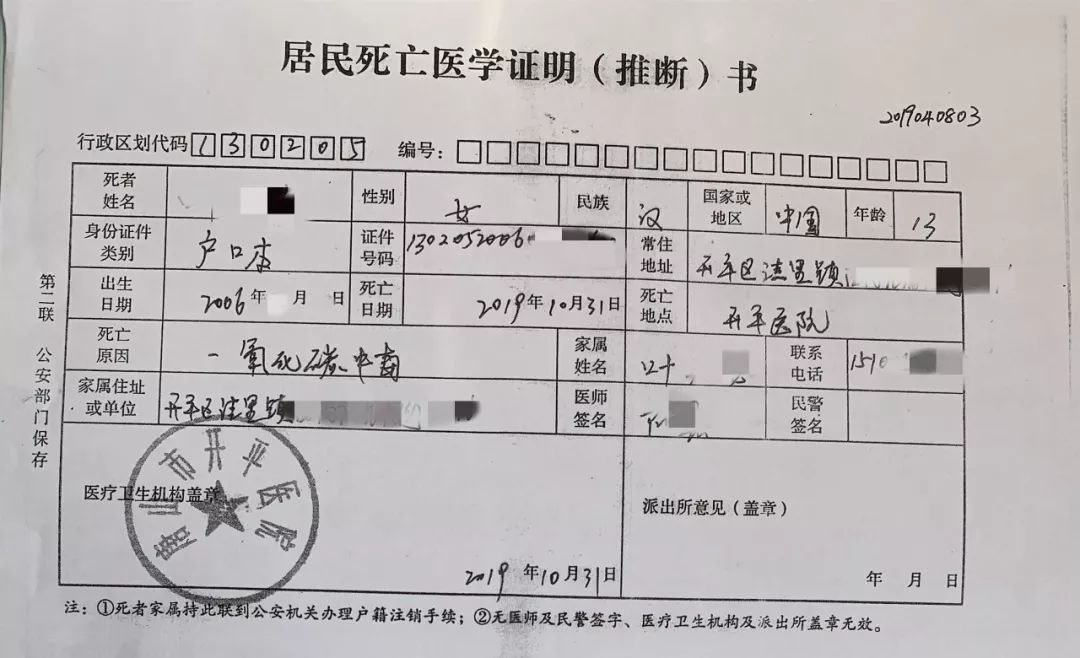 居民死亡医学证明（推断）书
2019040803
行政区划代码 130205 编号：
死者姓名 性别 女 民族 汉 国家或地区 中国 年龄 13
身份证件类别 户口本 证件号码 1302052006 常住地址 开平区洼里镇
出生日期 2006年 月 日 死亡日期 2019年10月31日 死亡地点 开平医院
死亡原因 一氧化碳中毒 家属姓名 联系电话 151
家属住址或单位 开平区洼里镇 医师签名 民警签名
第二联 公安部门保存
医疗卫生机构盖章
唐山市开平医院
2019年10月31日
派出所意见（盖章）
年 月 日
注：①死者家属持此联到公安机关办理户籍注销手续；②无医师及民警签字、医疗卫生机构及派出所盖章无效。